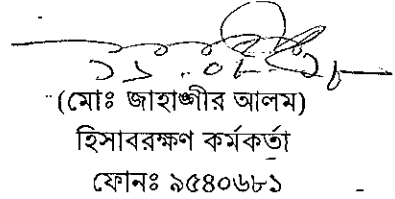 (মোঃ জাহাঙ্গীর আলম)
হিসাবরক্ষণ কর্মকর্তা
ফোনঃ ৯৫৪০৬৮১